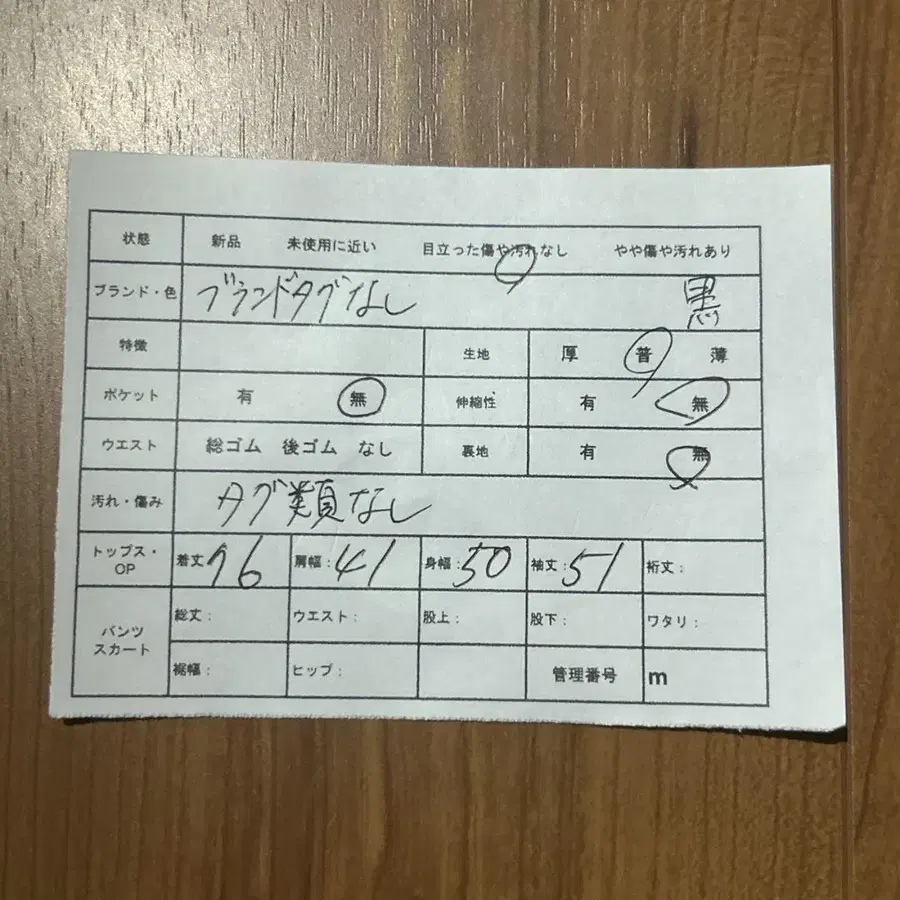 状態 新品 未使用に近い 目立った傷や汚れなし やや傷や汚れあり
ブランド・色 ブランドタグなし 黒
特徴 生地 厚 普 薄
ポケット 有 無 伸縮性 有 無
ウエスト 総ゴム 後ゴム なし 裏地 有 無
汚れ・傷み タグ類なし
トップス・OP 着丈76 肩幅:41 身幅:50 袖丈:51 裄丈:
パンツ スカート 総丈: ウエスト: 股上: 股下: ワタリ:
裾幅: ヒップ: 管理番号 m